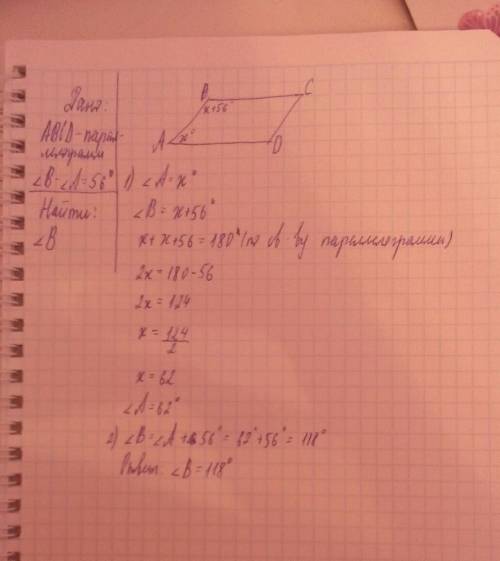 Дано:
ABCD-парал-
лелограмм
∠B-∠A=56°
Найти:
∠B
B
C
x+56
A
x°
D
1) ∠A=x°
∠B=x+56°
x+x+56=180° (по св-ву параллелограмма)
2x=180-56
2x=124
x=124/2
x=62
∠A=62°
2) ∠B=∠A+56°=62°+56°=118°
Ответ: ∠B=118°